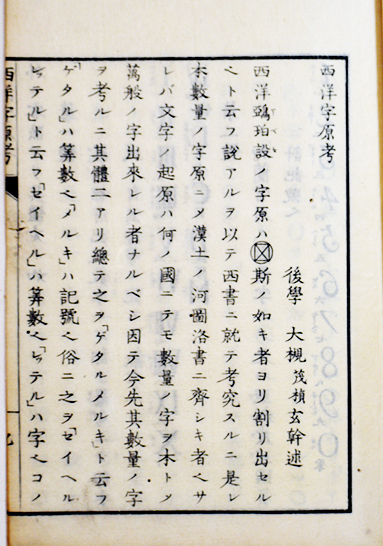 西洋字原考
後學 大槻茂楨玄幹述
西洋鴉珀設ノ字原ハ斯ノ如キ者ヨリ割リ出セル
ヘト云フ説アルヲ以テ西書ニ就テ考究スルニ是レ
本數量ノ字原ニメ漢土ノ河圖洛書ニ齊シキ者ヘサ
レバ文字ノ起原ハ何ノ國ニテモ數量ノ字ヲ本トメ
萬般ノ字出來レル者ナルベシ因テ今先其數量ノ字
ヲ考ルニ其體二アリ總テ之ヲ「ゲタルメルキ」ト云フ
「ゲタル」ハ算數ヘ「メルキ」ハ記號ヘ俗ニ之ヲ「セイヘル
レッテル」ト云フ「セイヘル」ハ算數ヘ「レッテル」ハ字ヘコノ
西洋字原考